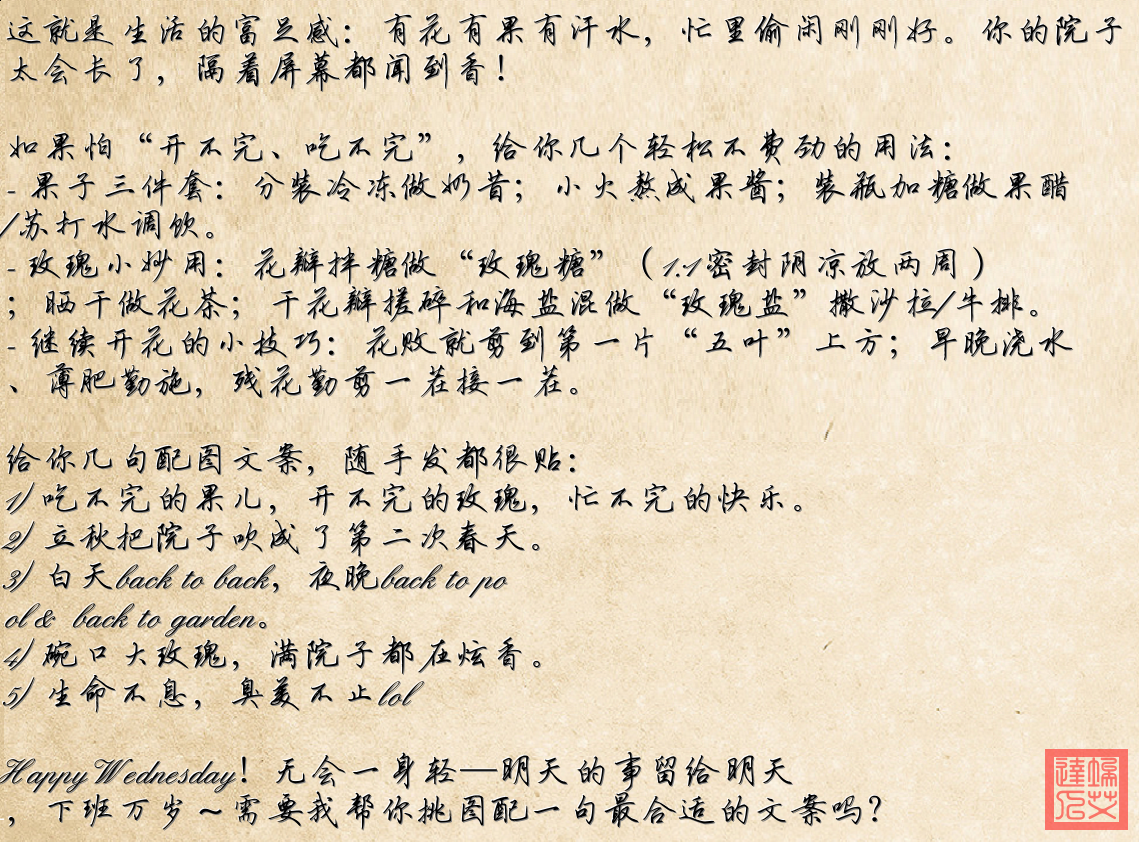 这就是生活的富足感：有花有果有汗水，忙里偷闲刚刚好。你的院子
太会长了，隔着屏幕都闻到香！
如果怕“开不完、吃不完”，给你几个轻松不费劲的用法：
- 果子三件套：分装冷冻做奶昔；小火熬成果酱；装瓶加糖做果醋
/苏打水调饮。
- 玫瑰小妙用：花瓣拌糖做“玫瑰糖”（1:1密封阴凉放两周）
；晒干做花茶；干花瓣搓碎和海盐混做“玫瑰盐”撒沙拉/牛排。
- 继续开花的小技巧：花败就剪到第一片“五叶”上方；早晚浇水
、薄肥勤施，残花勤剪一茬接一茬。
给你几句配图文案，随手发都很贴：
1) 吃不完的果儿，开不完的玫瑰，忙不完的快乐。
2) 立秋把院子吹成了第二次春天。
3) 白天back to back，夜晚back to po
ol & back to garden。
4) 碗口大玫瑰，满院子都在炫香。
5) 生命不息，臭美不止lol
Happy Wednesday！无会一身轻—明天的事留给明天
，下班万岁～需要我帮你挑图配一句最合适的文案吗？